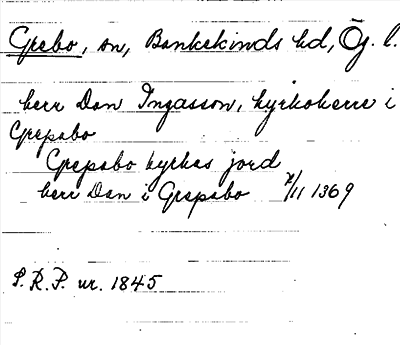 Grebo, sn, Bankekinds hd, Ög. l.
herr Dan Ingasson, kyrkoherre i
Grepabo
Grepabo kyrkas jord
herr Dan i Grepabo 7/11 1369
S.R.P. nr. 1845